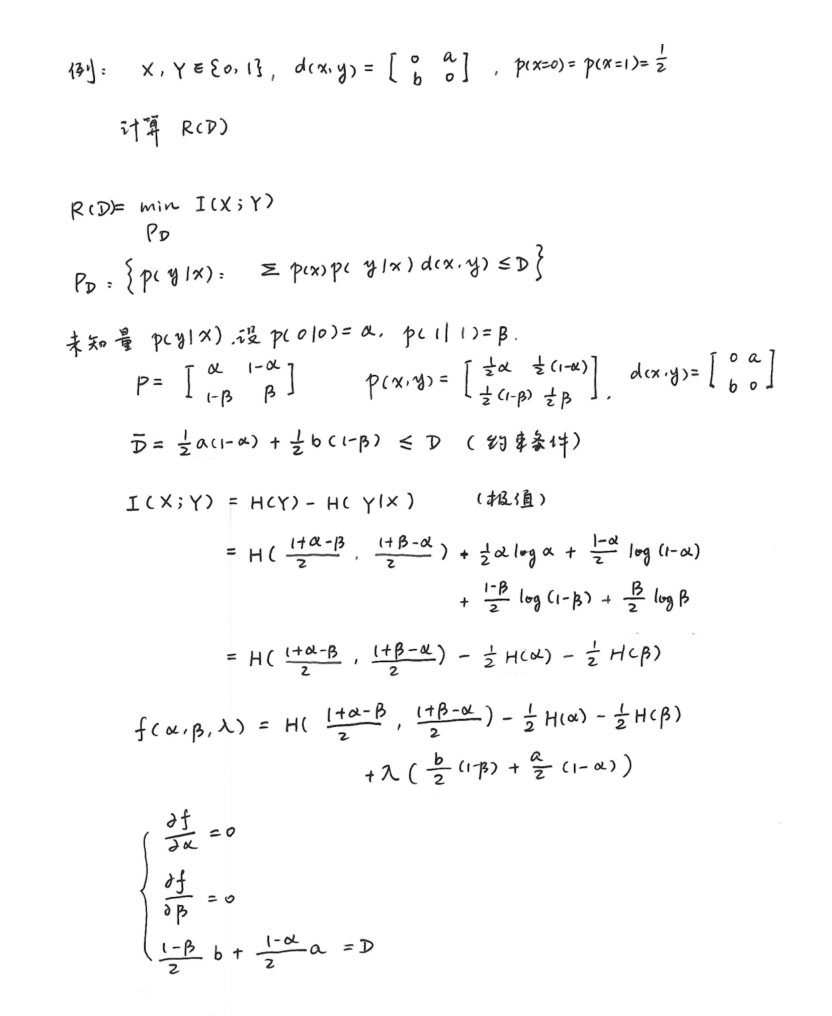 例: X, Y ∈ {0, 1}, d(x,y) = [ 0 a ; b 0 ] , p(x=0) = p(x=1) = 1/2
计算 R(D)
R(D) = min I(X;Y)
P_D
P_D : { p(y|x) : Σ p(x) p(y|x) d(x,y) ≤ D }
未知量 p(y|x). 设 p(0|0) = α, p(1|1) = β.
P = [ α 1-α ; 1-β β ] p(x,y) = [ 1/2 α 1/2 (1-α) ; 1/2 (1-β) 1/2 β ]. d(x,y) = [ 0 a ; b 0 ]
D̄ = 1/2 a(1-α) + 1/2 b(1-β) ≤ D (约束条件)
I(X;Y) = H(Y) - H(Y|X) (极值)
= H( (1+α-β)/2 , (1+β-α)/2 ) + 1/2 α log α + (1-α)/2 log (1-α)
+ (1-β)/2 log (1-β) + β/2 log β
= H( (1+α-β)/2 , (1+β-α)/2 ) - 1/2 H(α) - 1/2 H(β)
f(α,β,λ) = H( (1+α-β)/2 , (1+β-α)/2 ) - 1/2 H(α) - 1/2 H(β)
+ λ ( b/2 (1-β) + a/2 (1-α) )
{ ∂f/∂α = 0
∂f/∂β = 0
(1-β)/2 b + (1-α)/2 a = D